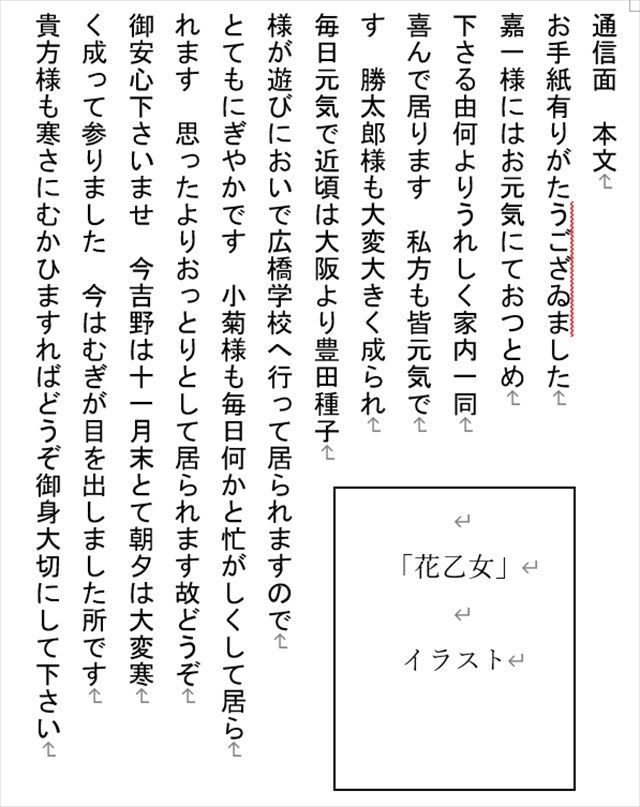 通信面　本文
お手紙有りがたうござゐました
嘉一様にはお元気にておつとめ
下さる由何よりうれしく家内一同
喜んで居ります　私方も皆元気で
す　勝太郎様も大変大きく成られ
毎日元気で近頃は大阪より豊田種子
様が遊びにおいで広橋学校へ行って居られますので
とてもにぎやかです　小菊様も毎日何かと忙がしくして居ら
れます　思ったよりおっとりとして居られます故どうぞ
御安心下さいませ　今吉野は十一月末とて朝夕は大変寒
く成って参りました　今はむぎが目を出しました所です
貴方様も寒さにむかひますればどうぞ御身大切にして下さい
「花乙女」
イラスト